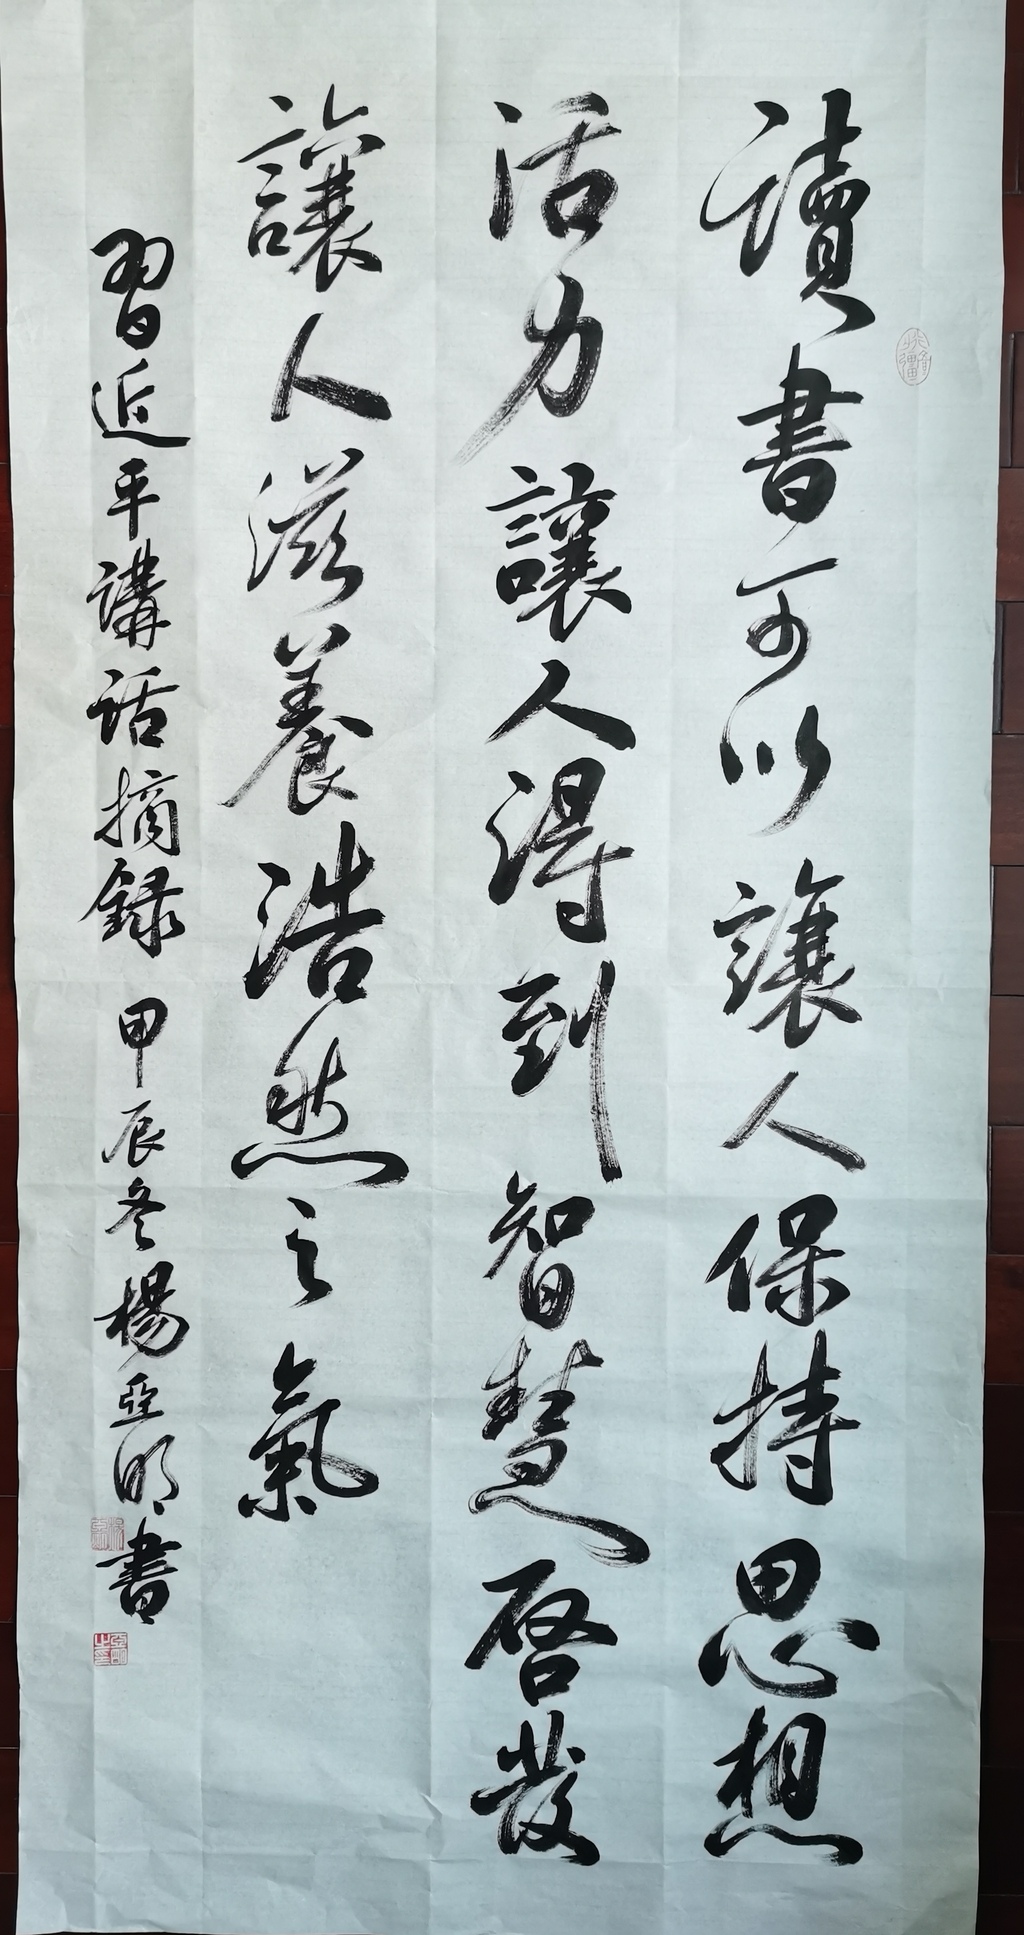 讀書可以讓人保持思想
活力讓人得到智慧啓發
讓人滋養浩然之氣
習近平講話摘錄 甲辰冬楊亞明書